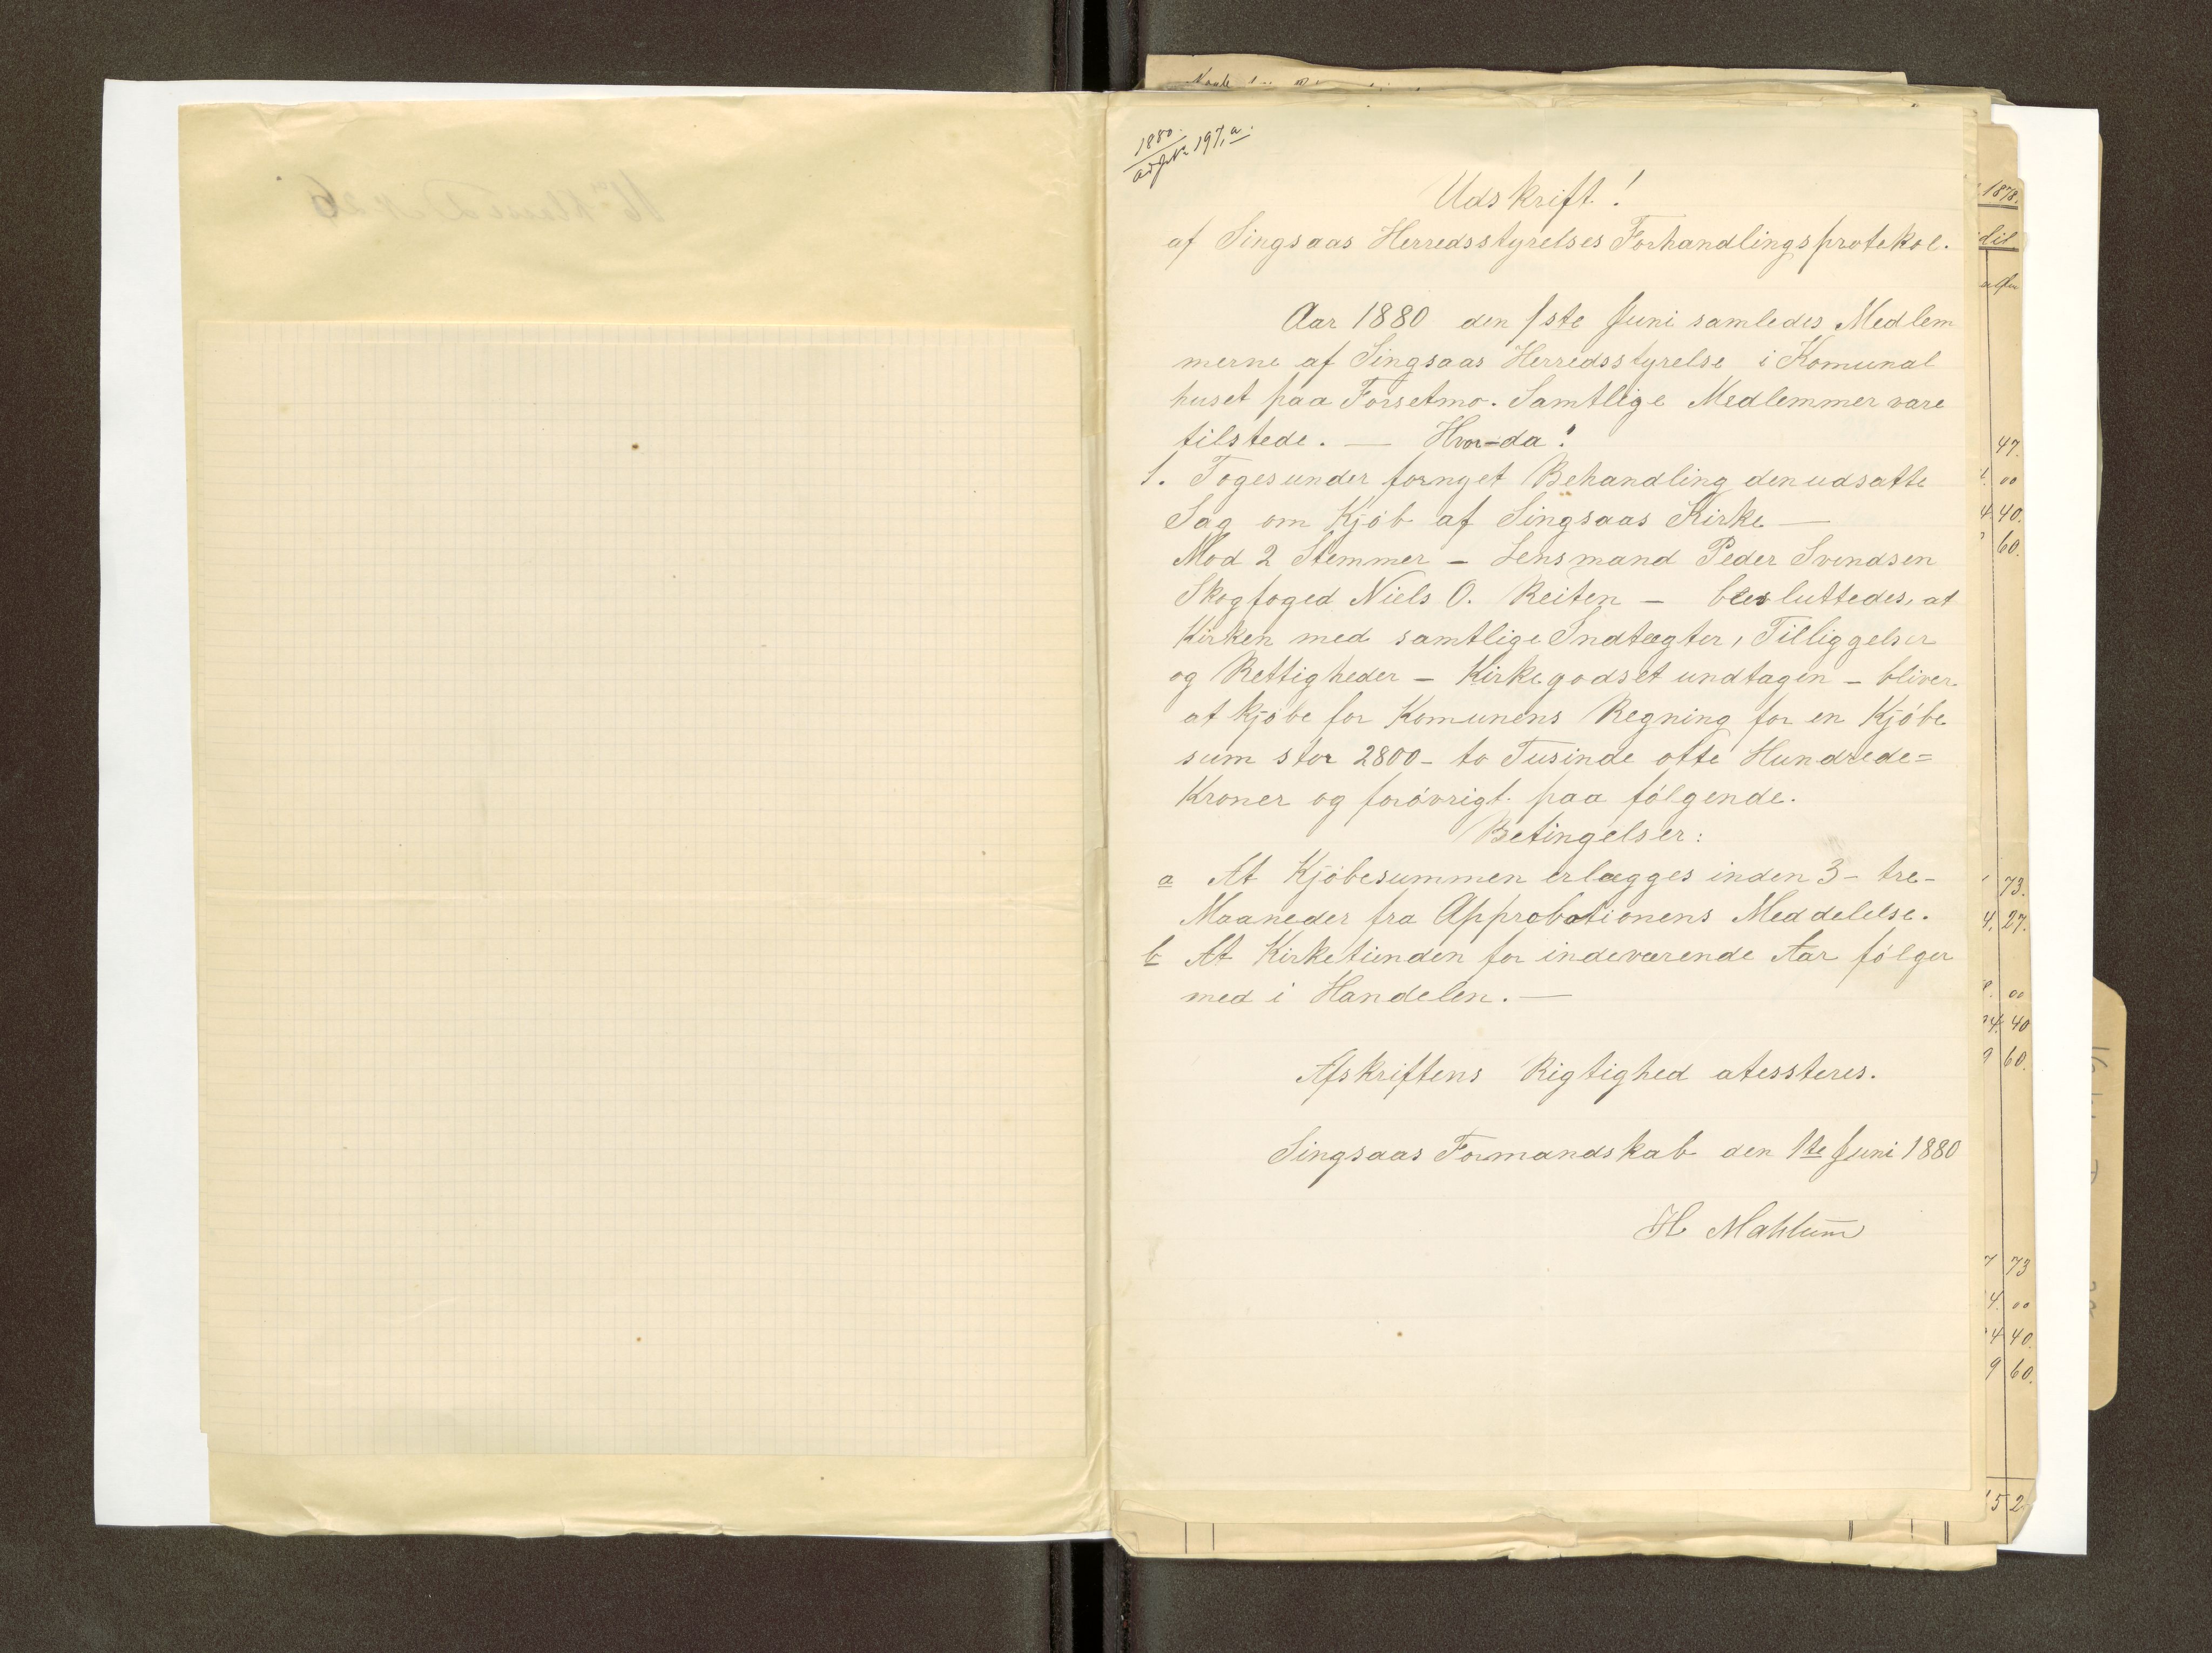 1880.
197,a.
Udskrift!
af Singsaas Herredsstyrelses Forhandlingsprotekol.
Aar 1880 den 1ste Juni samledes Medlem
merne af Singsaas Herredsstyrelse i Komunal
huset paa Forsetmo. Samtlige Medlemmer vare
tilstede. — Hvor=da!
1. Toges under fornyet Behandling den udsatte
Sag om Kjöb af Singsaas Kirke —
Mod 2 Stemmer – Lensmand Peder Svendsen
Skogfoged Niels O. Reiten – besluttedes, at
Kirken med samtlige Indtægter, Tilliggelser
og Rettigheder – Kirkegodset undtagen – bliver
at kjöbe for Komunens Regning for en Kjöbe
sum stor 2800 – to Tusinde otte Hundrede=
Kroner og forövrigt paa fölgende.
Betingelser:
a At Kjöbesummen erlægges inden 3 – tre –
Maaneder fra Approbationens Meddelelse.
b At Kirketienden for indeværende Aar fölger
med i Handelen. —
Afskriftens Rigtighed atessteres.
Singsaas Formandskab den 1te Juni 1880
H Mahlum
1878.
47.
00
40.
60.
73.
27.
00
40
60.
73
00
40.
60.
52